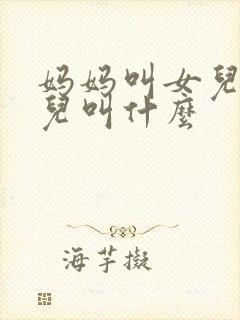 妈妈叫女兒
兒叫什麼
海芋擬